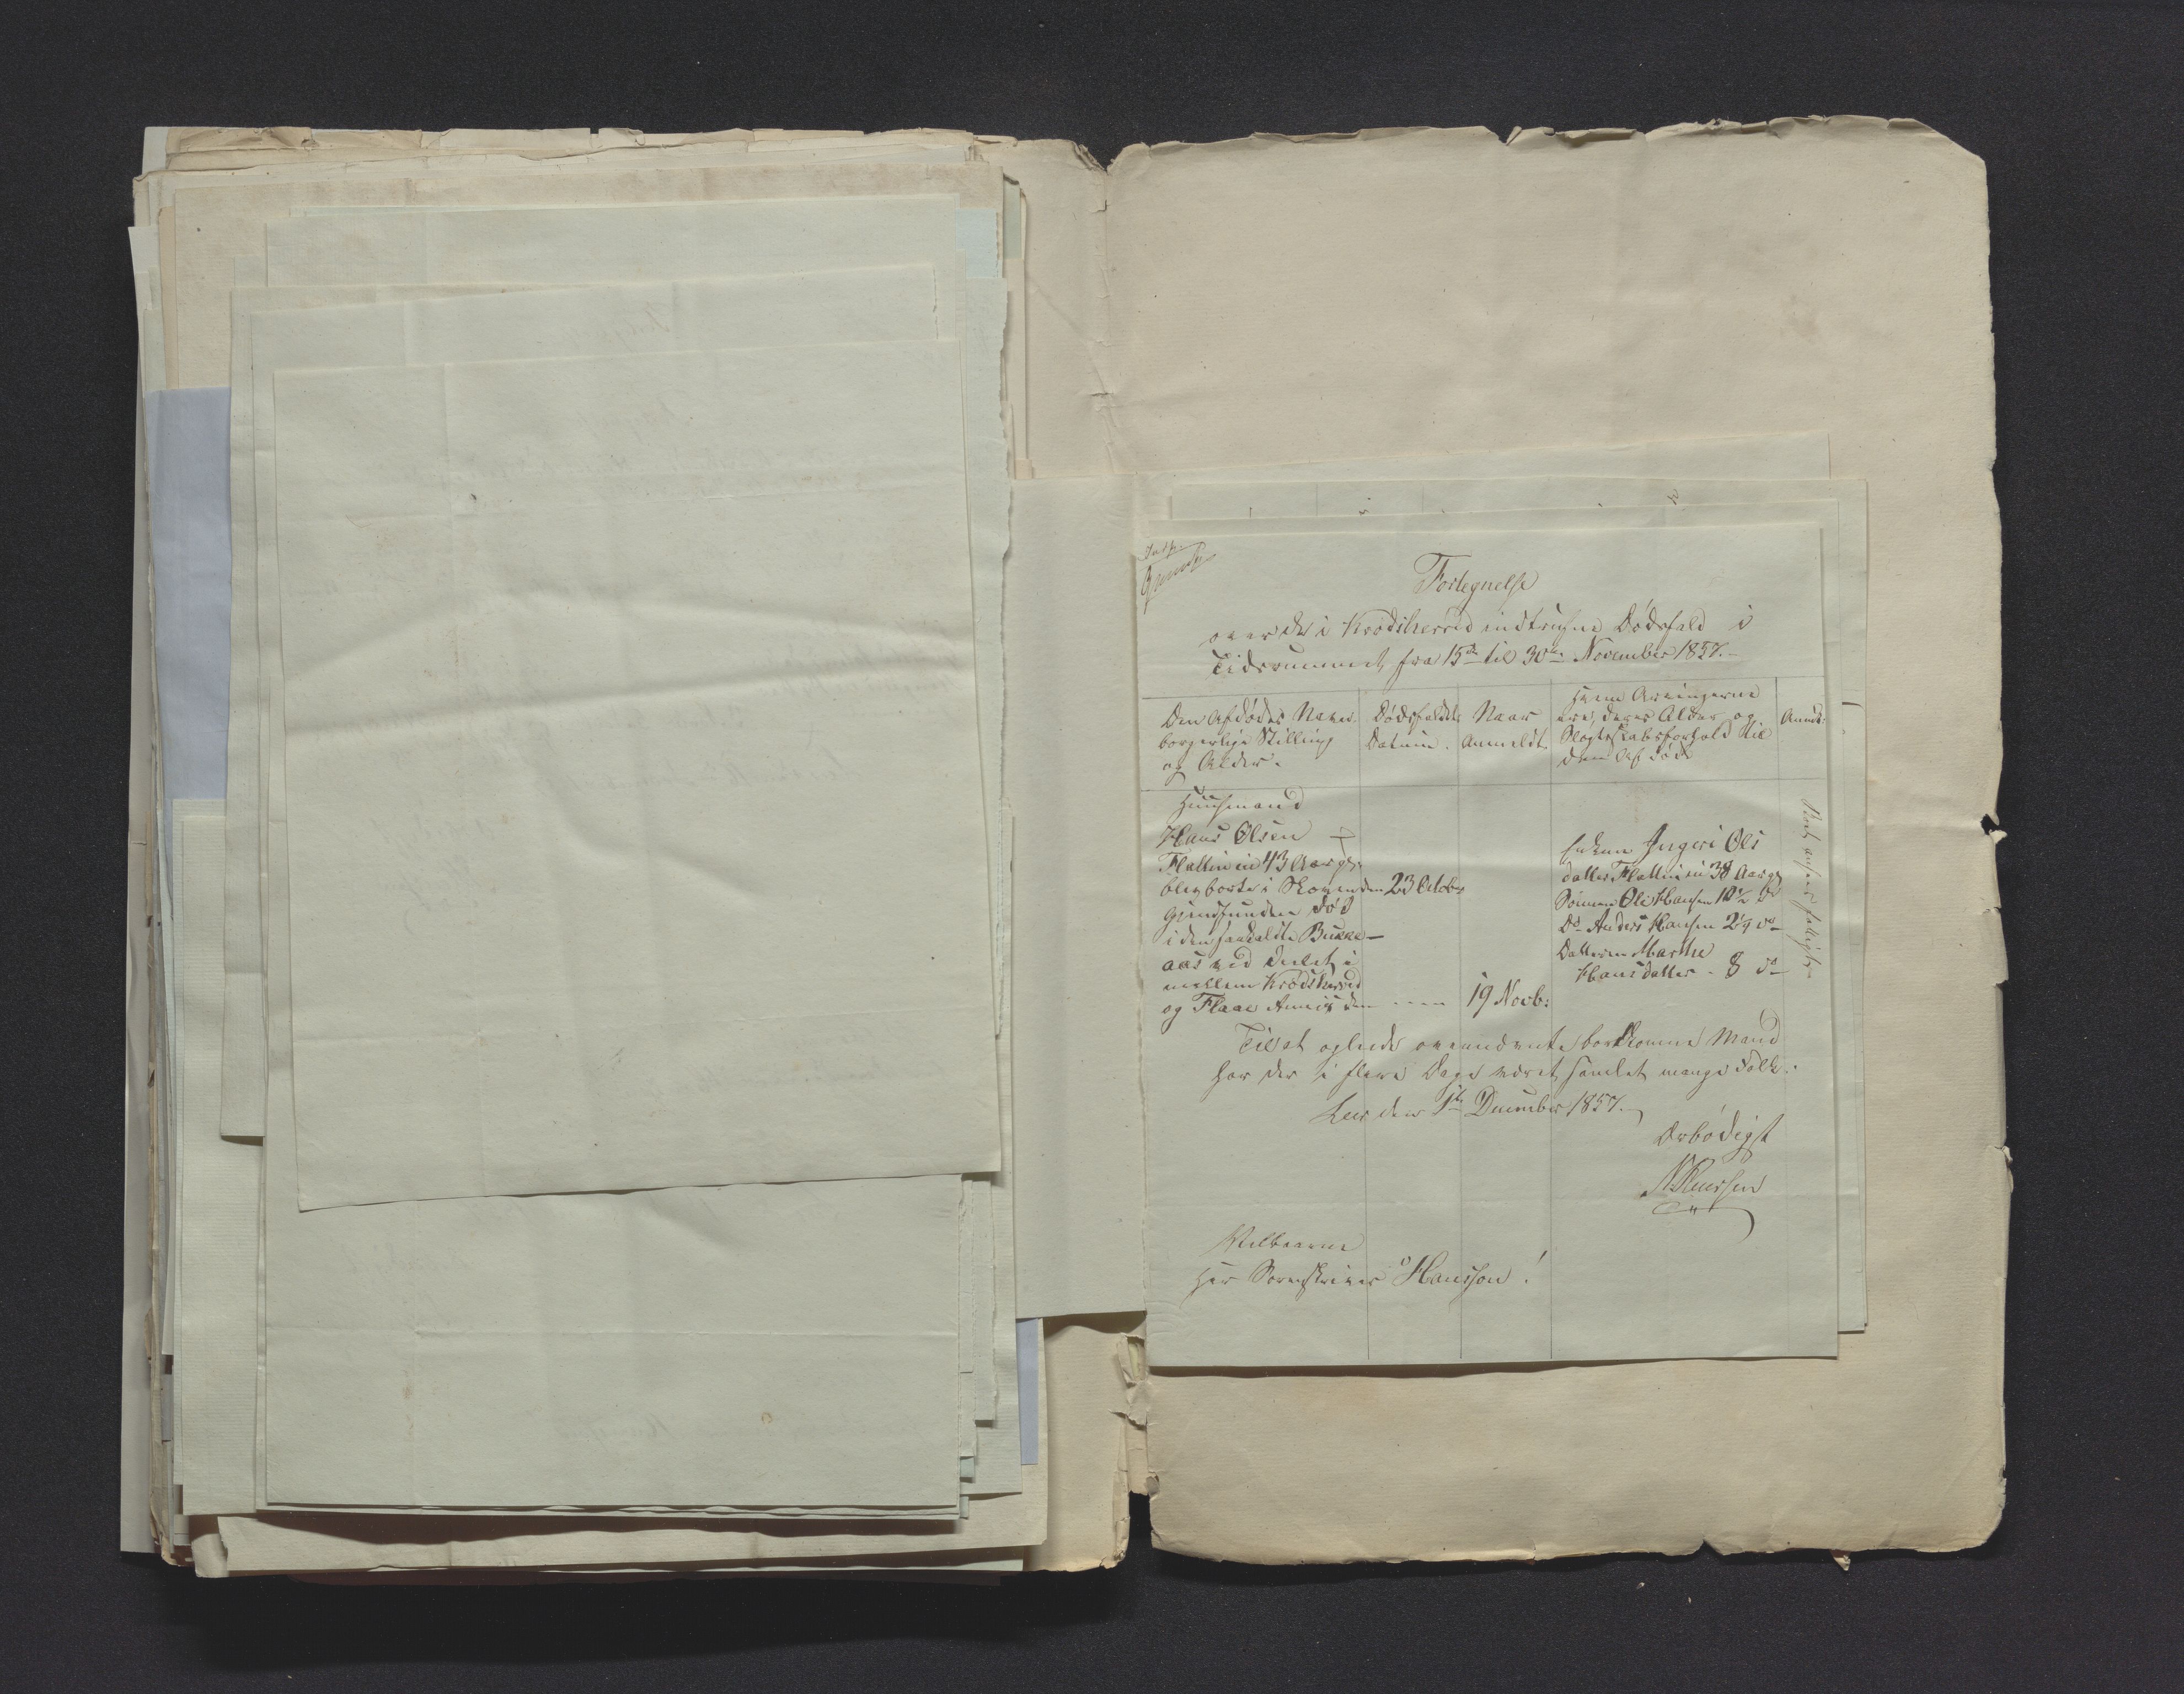 Fortegnelse
over de i Krødsherred indtrufne Dødsfald i
Tidsrummet fra 15de til 30te November 1857.
Den Afdødes Navn
borgerlige Stilling
og Alder.
Dødsfaldets
Datum.
Naar
Anmeldt
Hvem Arvingerne
ere, deres Alder og
Slægtskabsforhold til
den Afdøde
Anmk:
Huusmand
Hans Olsen
Flattin in 43 Aar gl.
blev borte i Skoven den 23 Octobr
Gjenfunden død
i den saakaldte Bukke-
aas ved Deelet i
mellem Krødsherred
og Flaae Annex den 19 Novb:
Enken Ingeri Ols
datter Flattin in 38 Aar gl
Sønnen Ole Hansen 10½ do
Do Anders Hansen 2¼ do
Datteren Marthe
Hansdatter - 8 do
Til at oplede ovennævnte bortkomne Mand
har der i flere Dage været samlet mange Folk.
Leer den 1te December 1857.
Ærbødigst
Velbaarne
Hr Sorenskriver Hansson!